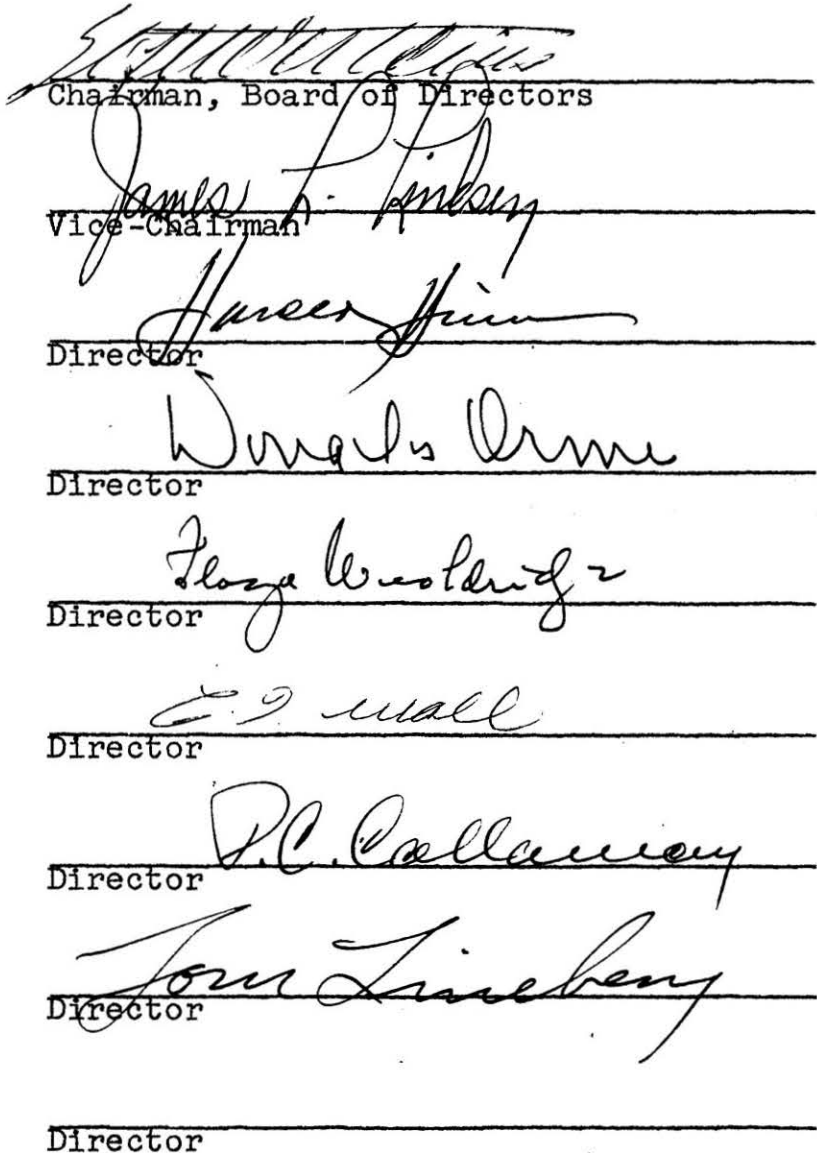 Chairman, Board of Directors
James L. Lindsey
Vice-Chairman
Director
Douglas Orme
Director
Floyd Wooldridge
Director
Wall
Director
P.C. Callaway
Director
Tom Lineberry
Director
Director